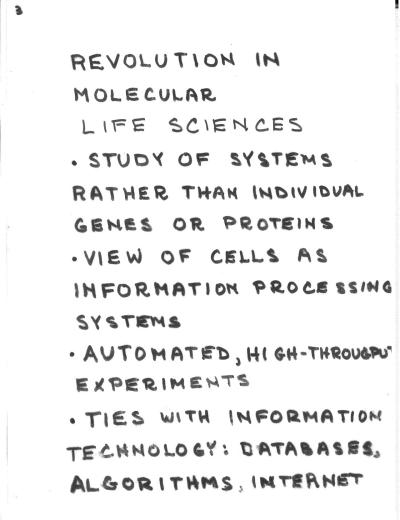 3
REVOLUTION IN
MOLECULAR
LIFE SCIENCES
• STUDY OF SYSTEMS
RATHER THAN INDIVIDUAL
GENES OR PROTEINS
• VIEW OF CELLS AS
INFORMATION PROCESSING
SYSTEMS
• AUTOMATED, HIGH-THROUGPU
EXPERIMENTS
• TIES WITH INFORMATION
TECHNOLOGY: DATABASES,
ALGORITHMS, INTERNET